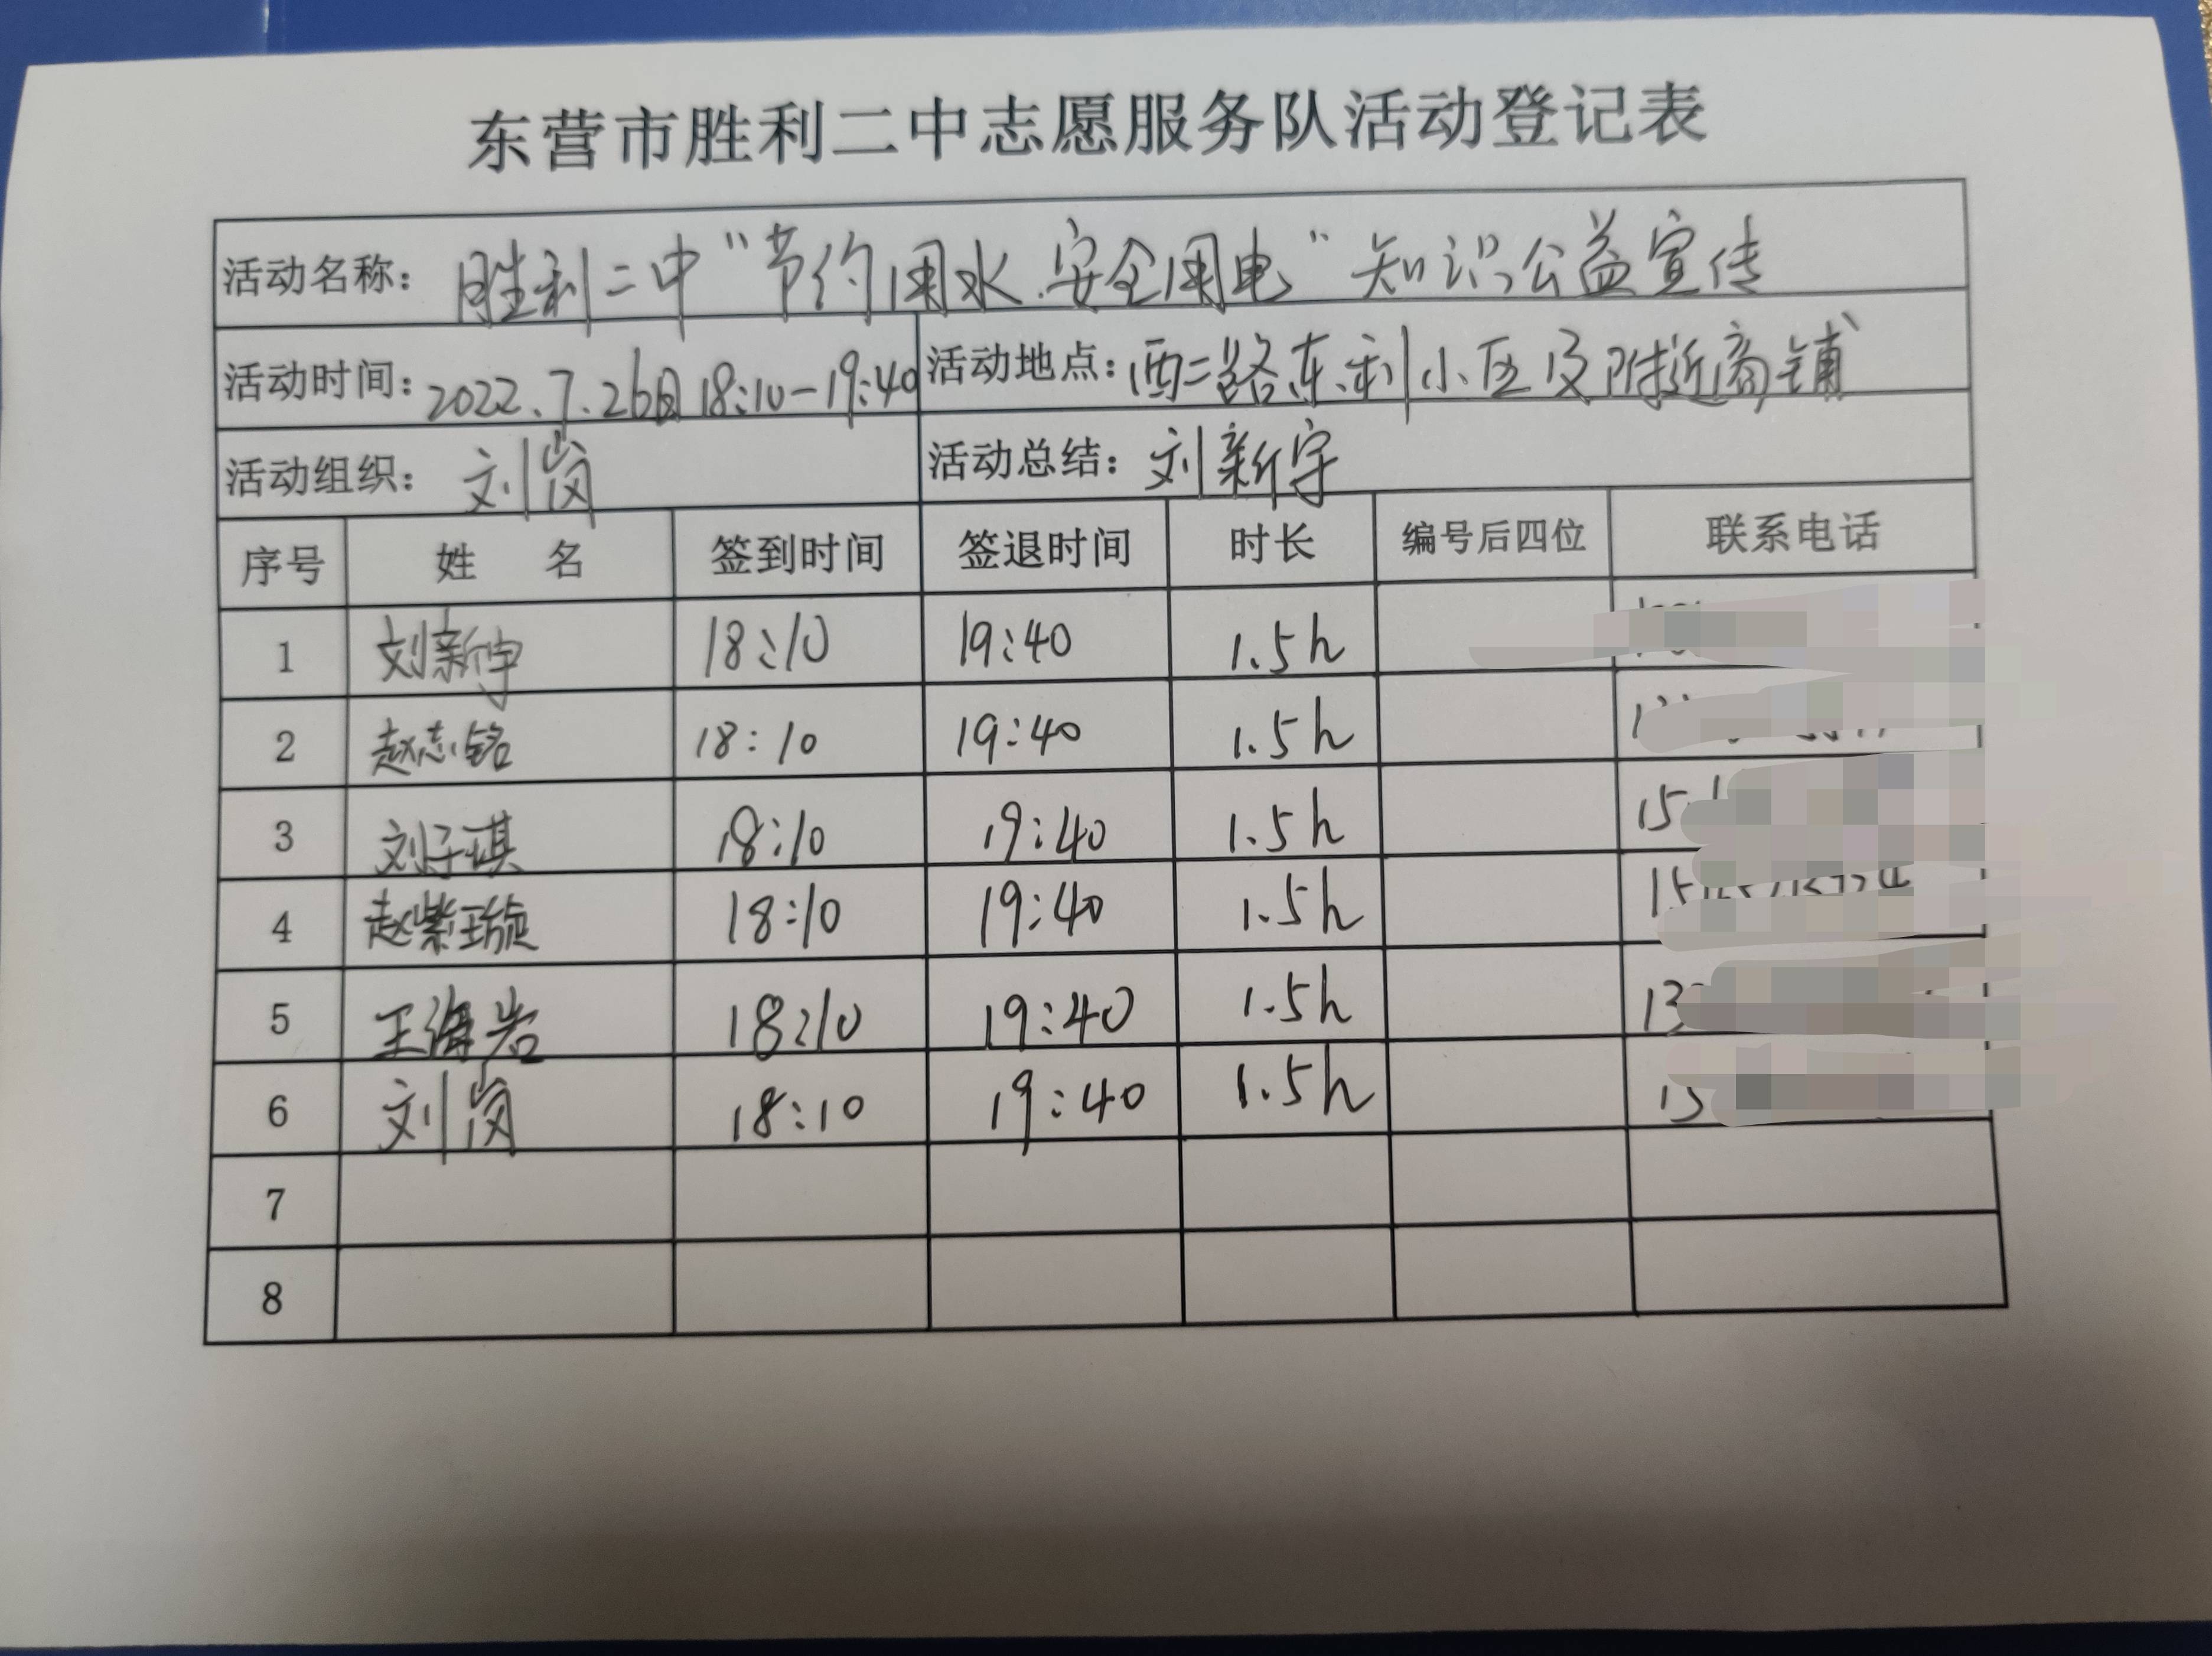 东营市胜利二中志愿服务队活动登记表
活动名称: 胜利二中“节约用水.安全用电”知识公益宣传
活动时间: 2022.7.26日 18:10-19:40 活动地点: 西二路东利小区及附近商铺
活动组织: 刘岗 活动总结: 刘新宇
序号 姓 名 签到时间 签退时间 时长 编号后四位 联系电话
1 刘新宇 18:10 19:40 1.5h
2 赵志铭 18:10 19:40 1.5h
3 刘子琪 18:10 19:40 1.5h
4 赵紫璇 18:10 19:40 1.5h
5 王海岩 18:10 19:40 1.5h
6 刘岗 18:10 19:40 1.5h
7
8